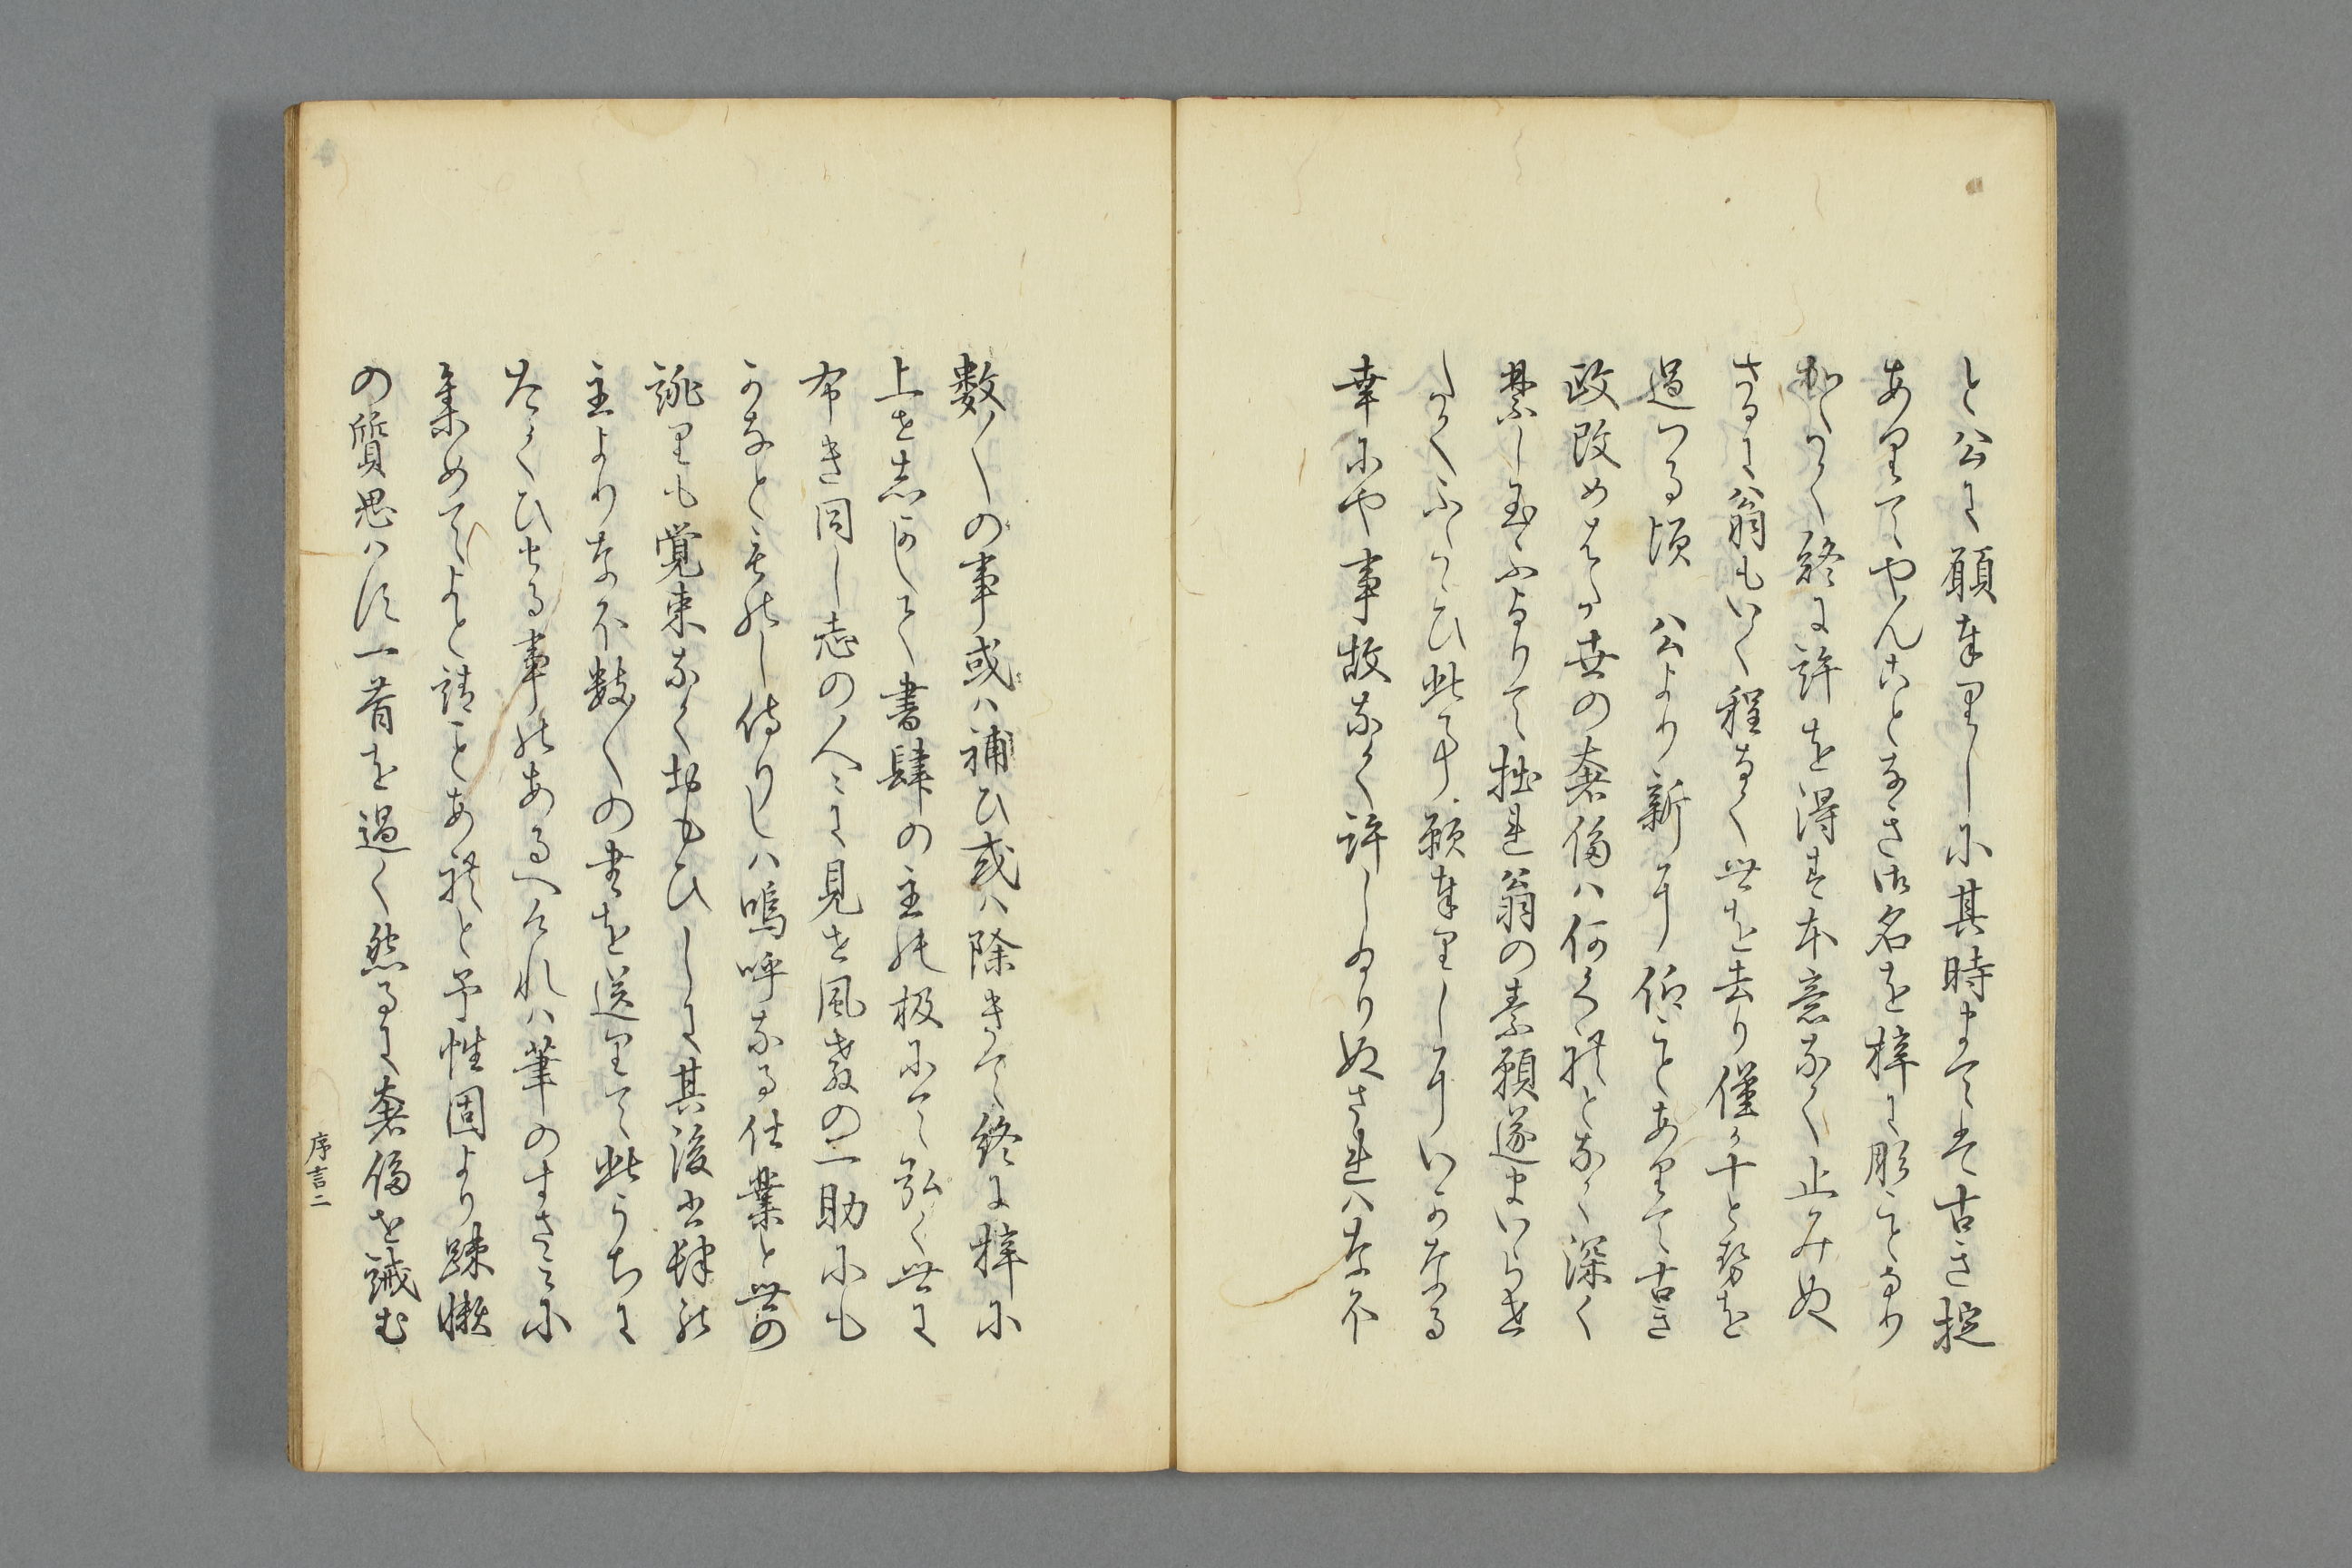 と公に願奉里しに其時まては古き掟
あリてやんことなき御名を梓に彫ことなり
かたく終に許を得す本意なく止みぬ
さるに翁もいく程なく世を去り僅か十とせを
過つる頃　公より新に仰ことあリて古き
政改めたまひ世の奢侈ハ何くれとなく深く
禁し玉ふよりて拙れ翁の素願遂まいらせ
たくふたゝひ此事願奉里しにいかなる
幸にや事故なく許しありぬされハなを
数〱の事或ハ補ひ或ハ除きて終に梓に
上せ志かして書肆の主の板にて弘く世に
布き同し志の人々に見せ風教の一助にも
かなとものし侍りしハ嗚呼なる仕業と世の
誹里も覚束なくおもひしに其後書肆の
主よりなを数〱の書を送里て此うちに
たくひせる事のあるへけれハ筆のすさミに
集めてよと請ことあれと予性固より踈懶
の質思ハす一昔を過く然るに奢侈を誡む
序言二